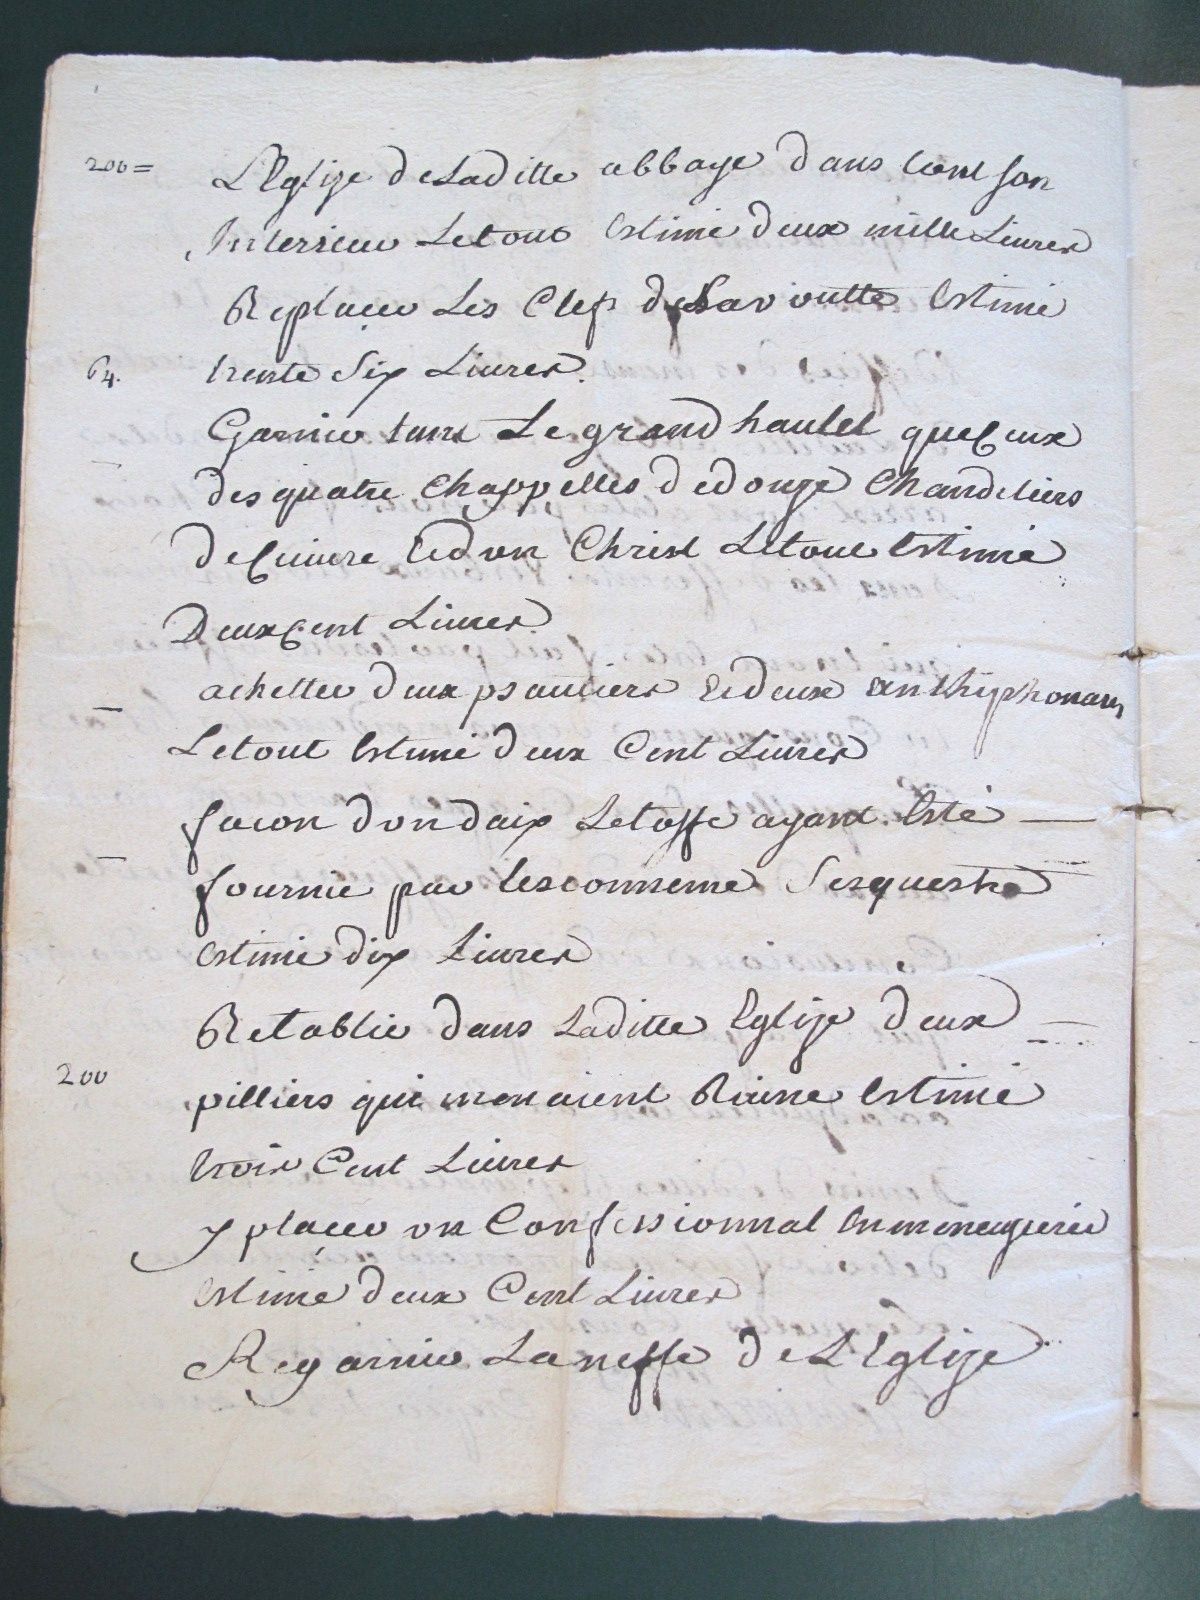 200 =
L'Eglize de Laditte abbaye dans tout son
Interieur Le tout Estimé deux mille Livres
Replacer Les Clefs de La voutte Estimé
64.
trente Six Livres.
Garnir tant Le grand hautel que Ceux
des quatre Chappelles de douze Chandeliers
de Cuivre Et d'un Christ Le tout Estimé
Deux Cent Livres.
achetter deux psautiers Et deux anthiphonaires
Le tout Estimé deux Cent Livres
facon d'un daix Letoffe ayant Esté —
fournie par Les Sequestre
Estimé dix Livres
Retablir dans Laditte Eglize deux —
200
pilliers qui menaient Ruine Estimé
trois Cent Livres
y placer un Confessionnal En menuzerie
Estimé deux Cent Livres
Regarnir La neffe de L'Eglize